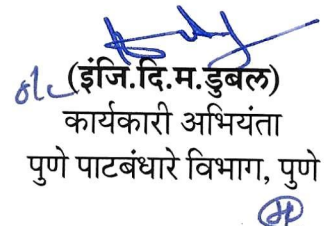 (इंजि.दि.म.डुबल)
कार्यकारी अभियंता
पुणे पाटबंधारे विभाग, पुणे